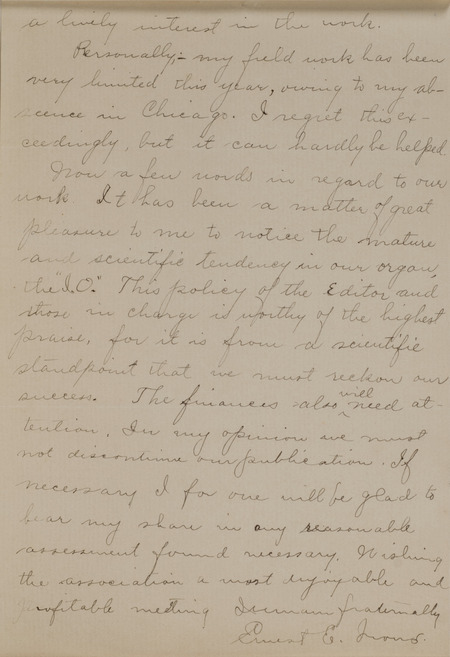 a lively interest in the work.
Personally:- my field work has been
very limited this year, owing to my ab-
scence in Chicago. I regret this ex-
ceedingly, but it can hardly be helped.
Now a few words in regard to our
work. It has been a matter of great
pleasure to me to notice the mature
and scientific tendency in our organ,
the "I.O." This policy of the Editor and
those in charge is worthy of the highest
praise, for it is from a scientific
standpoint that we must reckon our
success. The finances also will need at-
tention. In my opinion we must
not discontinue our publication. If
necessary I for one will be glad to
bear my share in any reasonable
assessment found necessary. Wishing
the association a most enjoyable and
profitable meeting I remain fraternally
Ernest E. Irons.